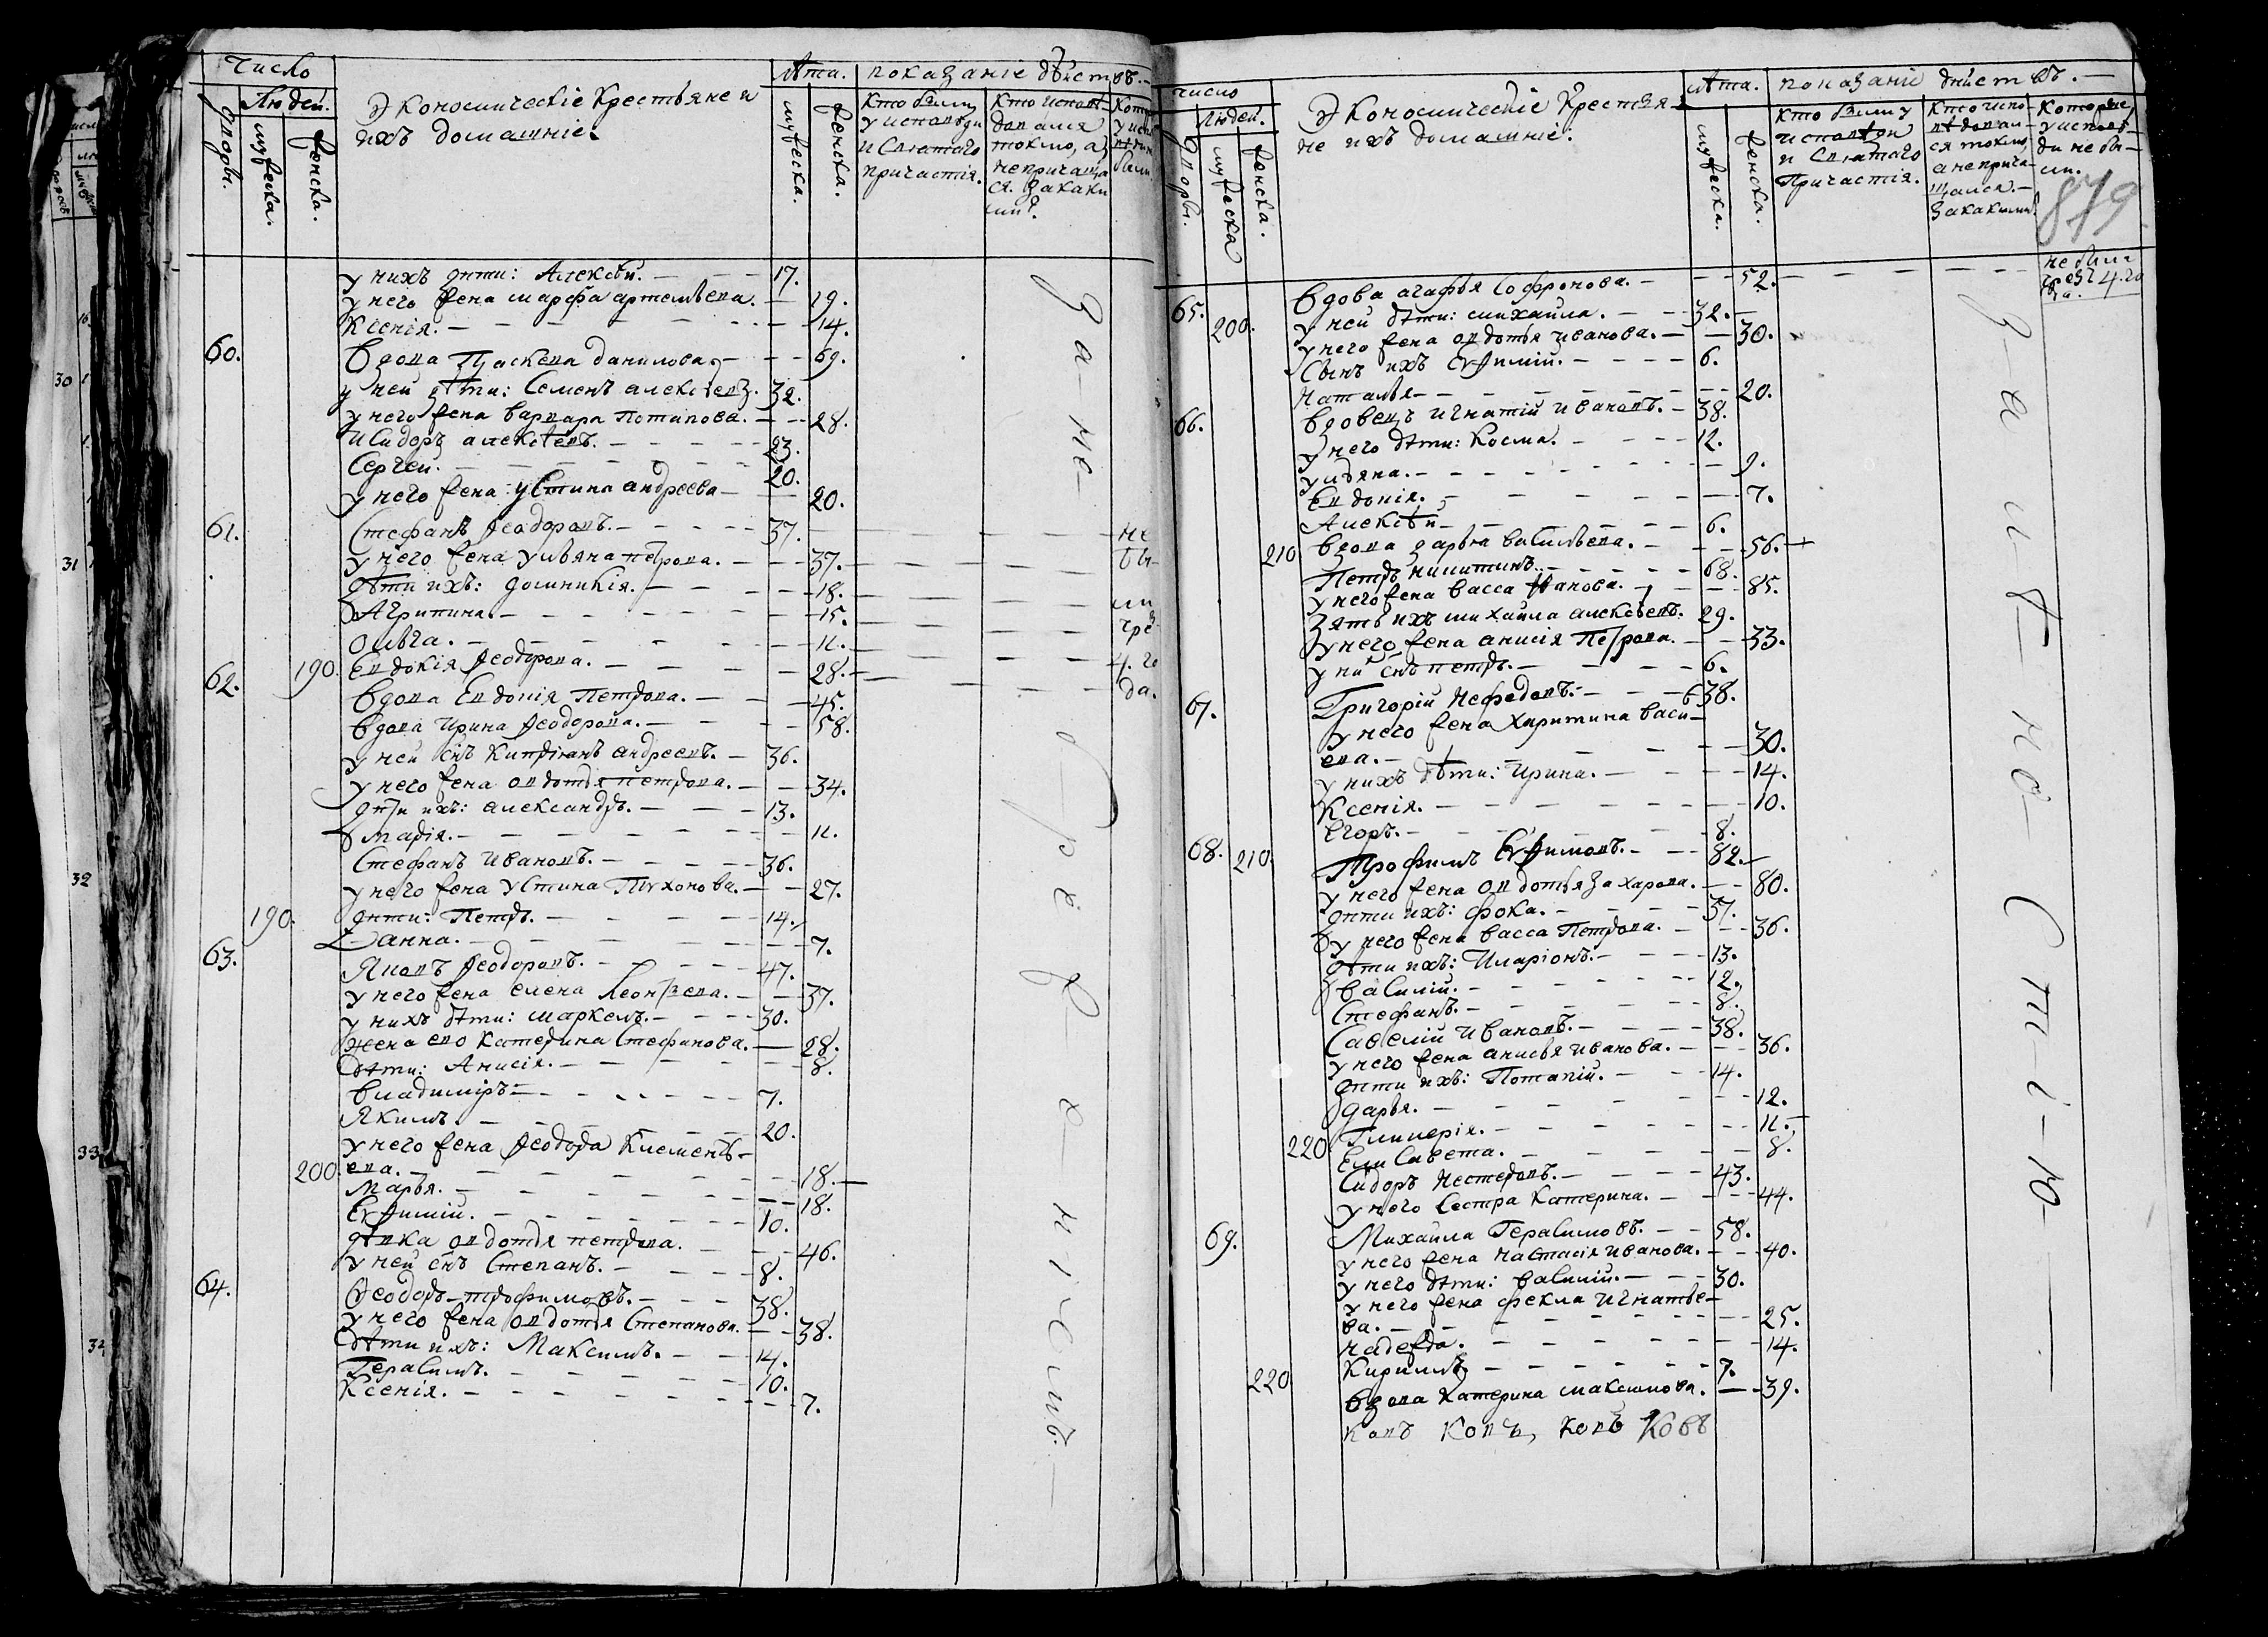 Число
Людей.
Дворы.
мужеска.
женска.
Экономическіе Крестьяне и
ихъ домашніе.
Лѣта.
мужеска.
женска.
показаніе дѣйствъ.
Кто были
у исповѣди
и Святаго
причастія.
Кто исповѣ-
дался
токмо, а
не причаща
ся. За каки
ми
у нихъ дѣти: Алексѣй. 17.
у него жена марфа артемьева. 19.
Ксенія. 14.
60. Вдова Праскева данилова. 69.
у ней дѣти: Семенъ алексѣевъ. 32.
у него жена варвара Потапова. 28.
Исидоръ алексѣевъ. 23.
Сергеи. 20.
у него жена устина андреева 20.
61. Стефанъ Ѳеодоровъ. 37. не
у него жена ульяна петрова. 37. бы-
дѣти ихъ: домникія. 18. ли
Агрипина. 15. чрез
Ольга. 11. 4. го
190. Евдокія Ѳеодорова. 28. да.
62. Вдова Евдокія Петрова. 45.
вдова Ирина Ѳеодорова. 58.
у ней снъ Кипріянъ андреевъ. 36.
у него жена овдотья петрова. 34.
дѣти ихъ: александръ. 13.
марія. 11.
Стефанъ Ивановъ. 36.
у него жена Устина Тихонова. 27.
190. дѣти: Петръ. 14.
анна. 7.
63. Яковъ Ѳеодоровъ. 47.
у него жена елена Леонтьева. 37.
у нихъ дѣти: маркелъ. 30.
жена ево Катерина Стефанова. 28.
дѣти: Анисія. 8.
владиміръ 7.
Якимъ. 20.
у него жена Ѳеодора Клементь-
200. ева. 18.
Марья. 18.
Евѳимій. 10.
дѣвка овдотья петрова. 46.
у ней снъ Степанъ. 8.
64. Ѳеодоръ трофимовъ. 38.
у него жена овдотья Степанова. 38.
дѣти ихъ: Максимъ. 14.
Герасимъ. 10.
Ксенія. 7.
За не
бреженіемъ.
число
Людей.
Дворы.
мужеска
женска.
Экономическіе Крестья-
не ихъ домашніе:
Лѣта.
мужеска.
женска.
показаніе дѣйствъ.
Кто были у
исповѣди
и Святаго
Причастія.
Кто испо-
вѣдовал-
ся токмо,
а не прича-
щался.
За какими
Которые
у исповѣ-
ди не бы-
ли.
879
65. Вдова агафья Софронова. 52. не были
чрез 4. го
да.
200. у ней дѣти: михайла. 32.
у него жена овдотья иванова. 30.
Сынъ ихъ Евѳимій. 6.
Наталья 20.
66. Вдовецъ игнатій ивановъ. 38.
у него дѣти: Косма. 12.
ульяна. 9.
Евдокія. 7.
Алексѣй 6.
210 вдова дарья васильева. 56.
Петръ никитинъ. 68.
у него жена васса иванова. 85.
Зять ихъ михайла алексѣевъ. 29.
у него жена анисія Петрова. 33.
у них снъ петръ. 6.
67. Григорій Нефедовъ. 38.
у него жена Харитина васи-
ева. 30.
у нихъ дѣти: Ирина. 14.
Ксенія. 10.
Егоръ. 8.
68. 210. Трофимъ Евѳимовъ. 82.
у него жена овдотья Захарова. 80.
дѣти ихъ: фока. 57.
у него жена васса Петрова. 36.
дѣти ихъ: Иларіонъ. 13.
василій. 12.
Стефанъ. 8.
Савелій ивановъ. 38.
у него жена анисья иванова. 36.
дѣти ихъ: Потапій. 14.
дарья. 12.
Гликерія. 11.
220. Елисавета. 8.
Сидоръ Нестеровъ. 43.
у него сестра Катерина. 44.
69. Михайла Герасимовъ. 58.
у него жена настасія иванова. 40.
у него дѣти: василій. 30.
у него жена фекла игнатье-
ва. 25.
надежда. 14.
Кирилъ 7.
220 вдова Катерина максимова. 39.
ковъ Ковъ, ковъ Ковъ